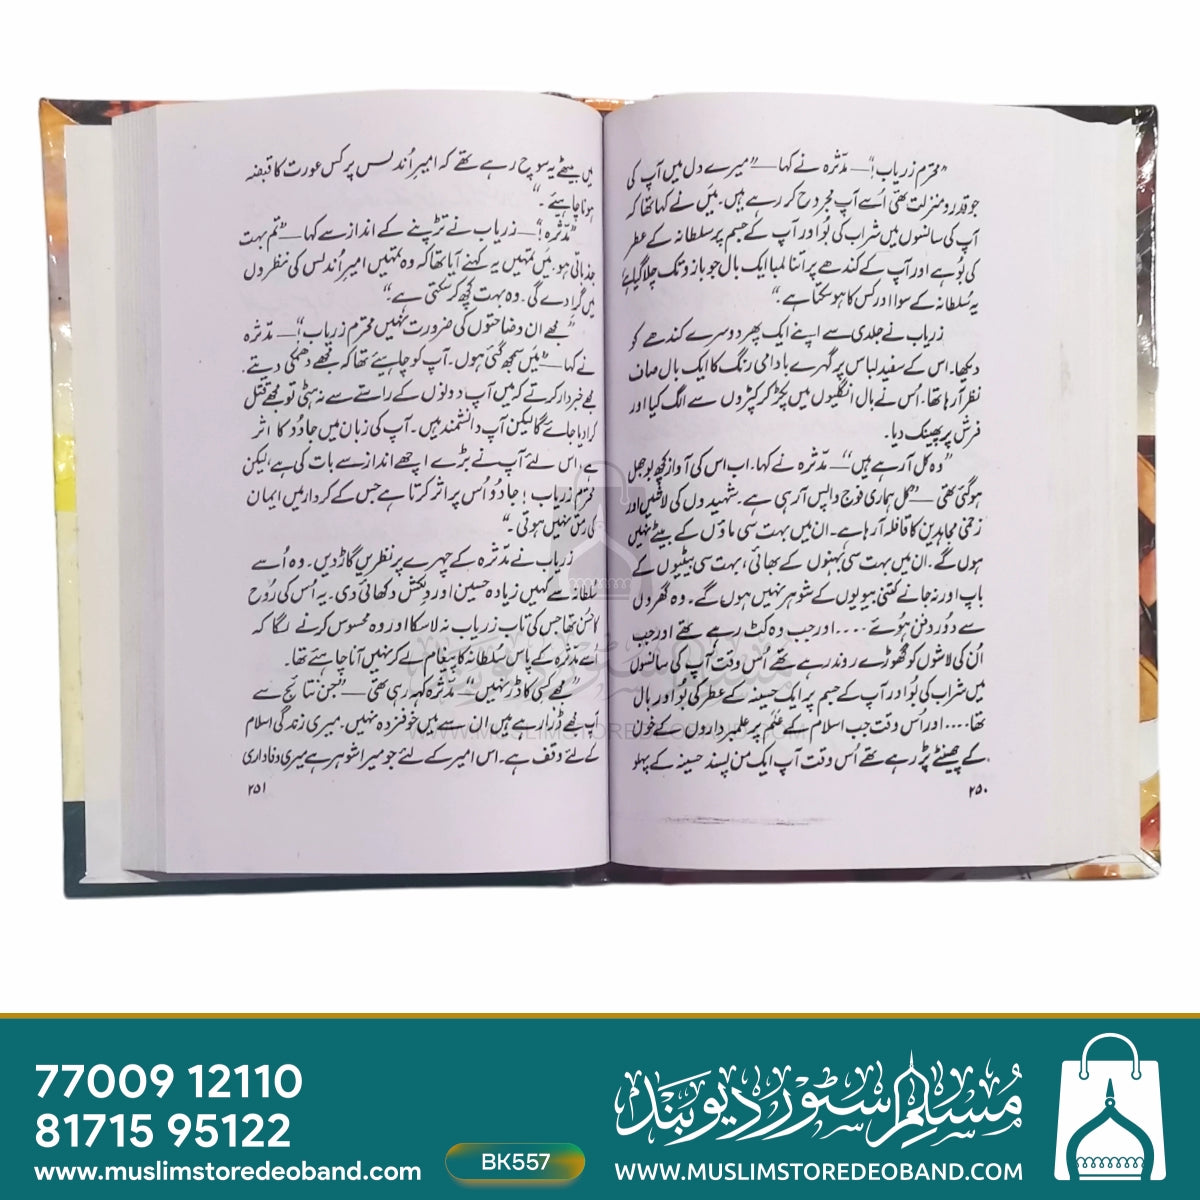 ”محترم زریاب!“ — مدّثرہ نے کہا — ”میرے دل میں آپ کی
جو قدر و منزلت تھی اُسے آپ مجروح کر رہے ہیں۔ میں نے کہا تھا کہ
آپ کی سانسوں میں شراب کی بُو اور آپ کے جسم پر سلطانہ کے عطر
کی بُو ہے اور آپ کے کندھے پر اتنا لمبا ایک بال جو بازو تک چلا گیا ہے
یہ سُلطانہ کے سوا اور کس کا ہو سکتا ہے۔“
زریاب نے جلدی سے اپنے ایک پھر دوسرے کندھے کو
دیکھا۔ اس کے سفید لباس پر گہرے بادامی رنگ کا ایک بال صاف
نظر آ رہا تھا۔ اُس نے بال انگلیوں میں پکڑ کر کپڑوں سے الگ کیا اور
فرش پر پھینک دیا۔
”وہ کل آ رہے ہیں“ — مدّثرہ نے کہا۔ اب اس کی آواز کچھ بوجھل
ہو گئی تھی — ”کل ہماری فوج واپس آ رہی ہے۔ شہیدوں کی لاشیں اور
زخمی مجاہدین کا قافلہ آ رہا ہے۔ ان میں بہت سی ماؤں کے بیٹے نہیں
ہوں گے۔ ان میں بہت سی بہنوں کے بھائی، بہت سی بیٹیوں کے
باپ اور نہ جانے کتنی بیویوں کے شوہر نہیں ہوں گے۔ وہ گھروں
سے دُور دفن ہوئے .... اور جب وہ کٹ رہے تھے اور جب
اُن کی لاشوں کو گھوڑے روند رہے تھے اُس وقت آپ کی سانسوں
میں شراب کی بُو اور آپ کے جسم پر ایک حسینہ کے عطر کی بُو اور بال
تھا .... اور اُس وقت جب اسلام کے علَم پر علمبرداروں کے خون
کے چھینٹے پڑ رہے تھے اُس وقت آپ ایک من پسند حسینہ کے پہلو
۲۵۰
میں بیٹھے یہ سوچ رہے تھے کہ امیرِ اُندلس پر کس عورت کا قبضہ
ہونا چاہیئے۔“
”مدّثرہ!“ — زریاب نے تڑپنے کے انداز سے کہا — ”تم بہت
جذباتی ہو۔ میں تمہیں یہ کہنے آیا تھا کہ وہ تمہیں امیرِ اُندلس کی نظروں
میں گرا دے گی۔ وہ بہت کچھ کر سکتی ہے۔“
”مجھے ان وضاحتوں کی ضرورت نہیں محترم زریاب!“ — مدّثرہ
نے کہا — ”میں سمجھ گئی ہوں۔ آپ کو چاہیئے تھا کہ مجھے دھمکی دیتے۔
مجھے خبردار کرتے کہ میں آپ دونوں کے راستے سے نہ ہٹی تو مجھے قتل
کرا دیا جائے گا لیکن آپ دانشمند ہیں۔ آپ کی زبان میں جادُو کا اثر
ہے، اس لئے آپ نے بڑے اچھے انداز سے بات کی ہے، لیکن
محترم زریاب! جادُو اُس پر اثر کرتا ہے جس کے کردار میں ایمان
کی رمق نہیں ہوتی۔“
زریاب نے مدّثرہ کے چہرے پر نظریں گاڑ دیں۔ وہ اُسے
سلطانہ سے کہیں زیادہ حسین اور دلکش دکھائی دی۔ یہ اُس کی رُوح
کا حُسن تھا جس کی تاب زریاب نہ لا سکا اور وہ محسوس کرنے لگا کہ
اُسے مدّثرہ کے پاس سُلطانہ کا پیغام لے کر نہیں آنا چاہیئے تھا۔
”مجھے کسی کا ڈر نہیں“ — مدّثرہ کہہ رہی تھی — ”جن نتائج سے
آپ مجھے ڈرا رہے ہیں ان سے میں خوفزدہ نہیں۔ میری زندگی اسلام
کے لئے وقف ہے۔ اس امیر کے لئے جو میرا شوہر ہے میری وفاداری
۲۵۱
مسلم سٹور دیوبند
WWW.MUSLIMSTOREDEOBAND.COM
77009 12110
81715 95122
www.muslimstoredeoband.com
BK557
مسلم سٹور دیوبند
WWW.MUSLIMSTOREDEOBAND.COM